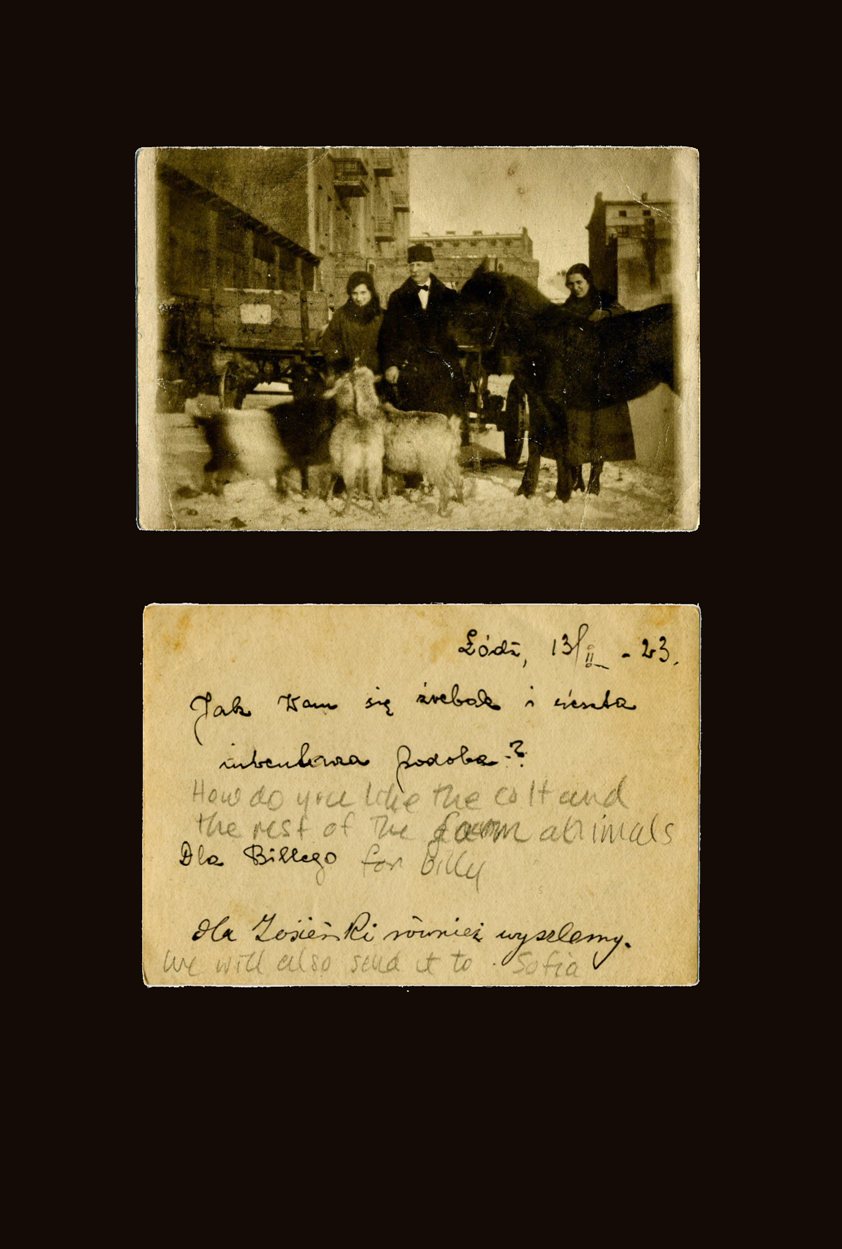 Łódź, 13/II - 23.
Jak Wam się źrebak i reszta
inwentarza podoba?
How do you like the colt and
the rest of the farm animals
Dla Billego for Billy
dla Zosieńki również wyselamy.
We will also send it to Sofia